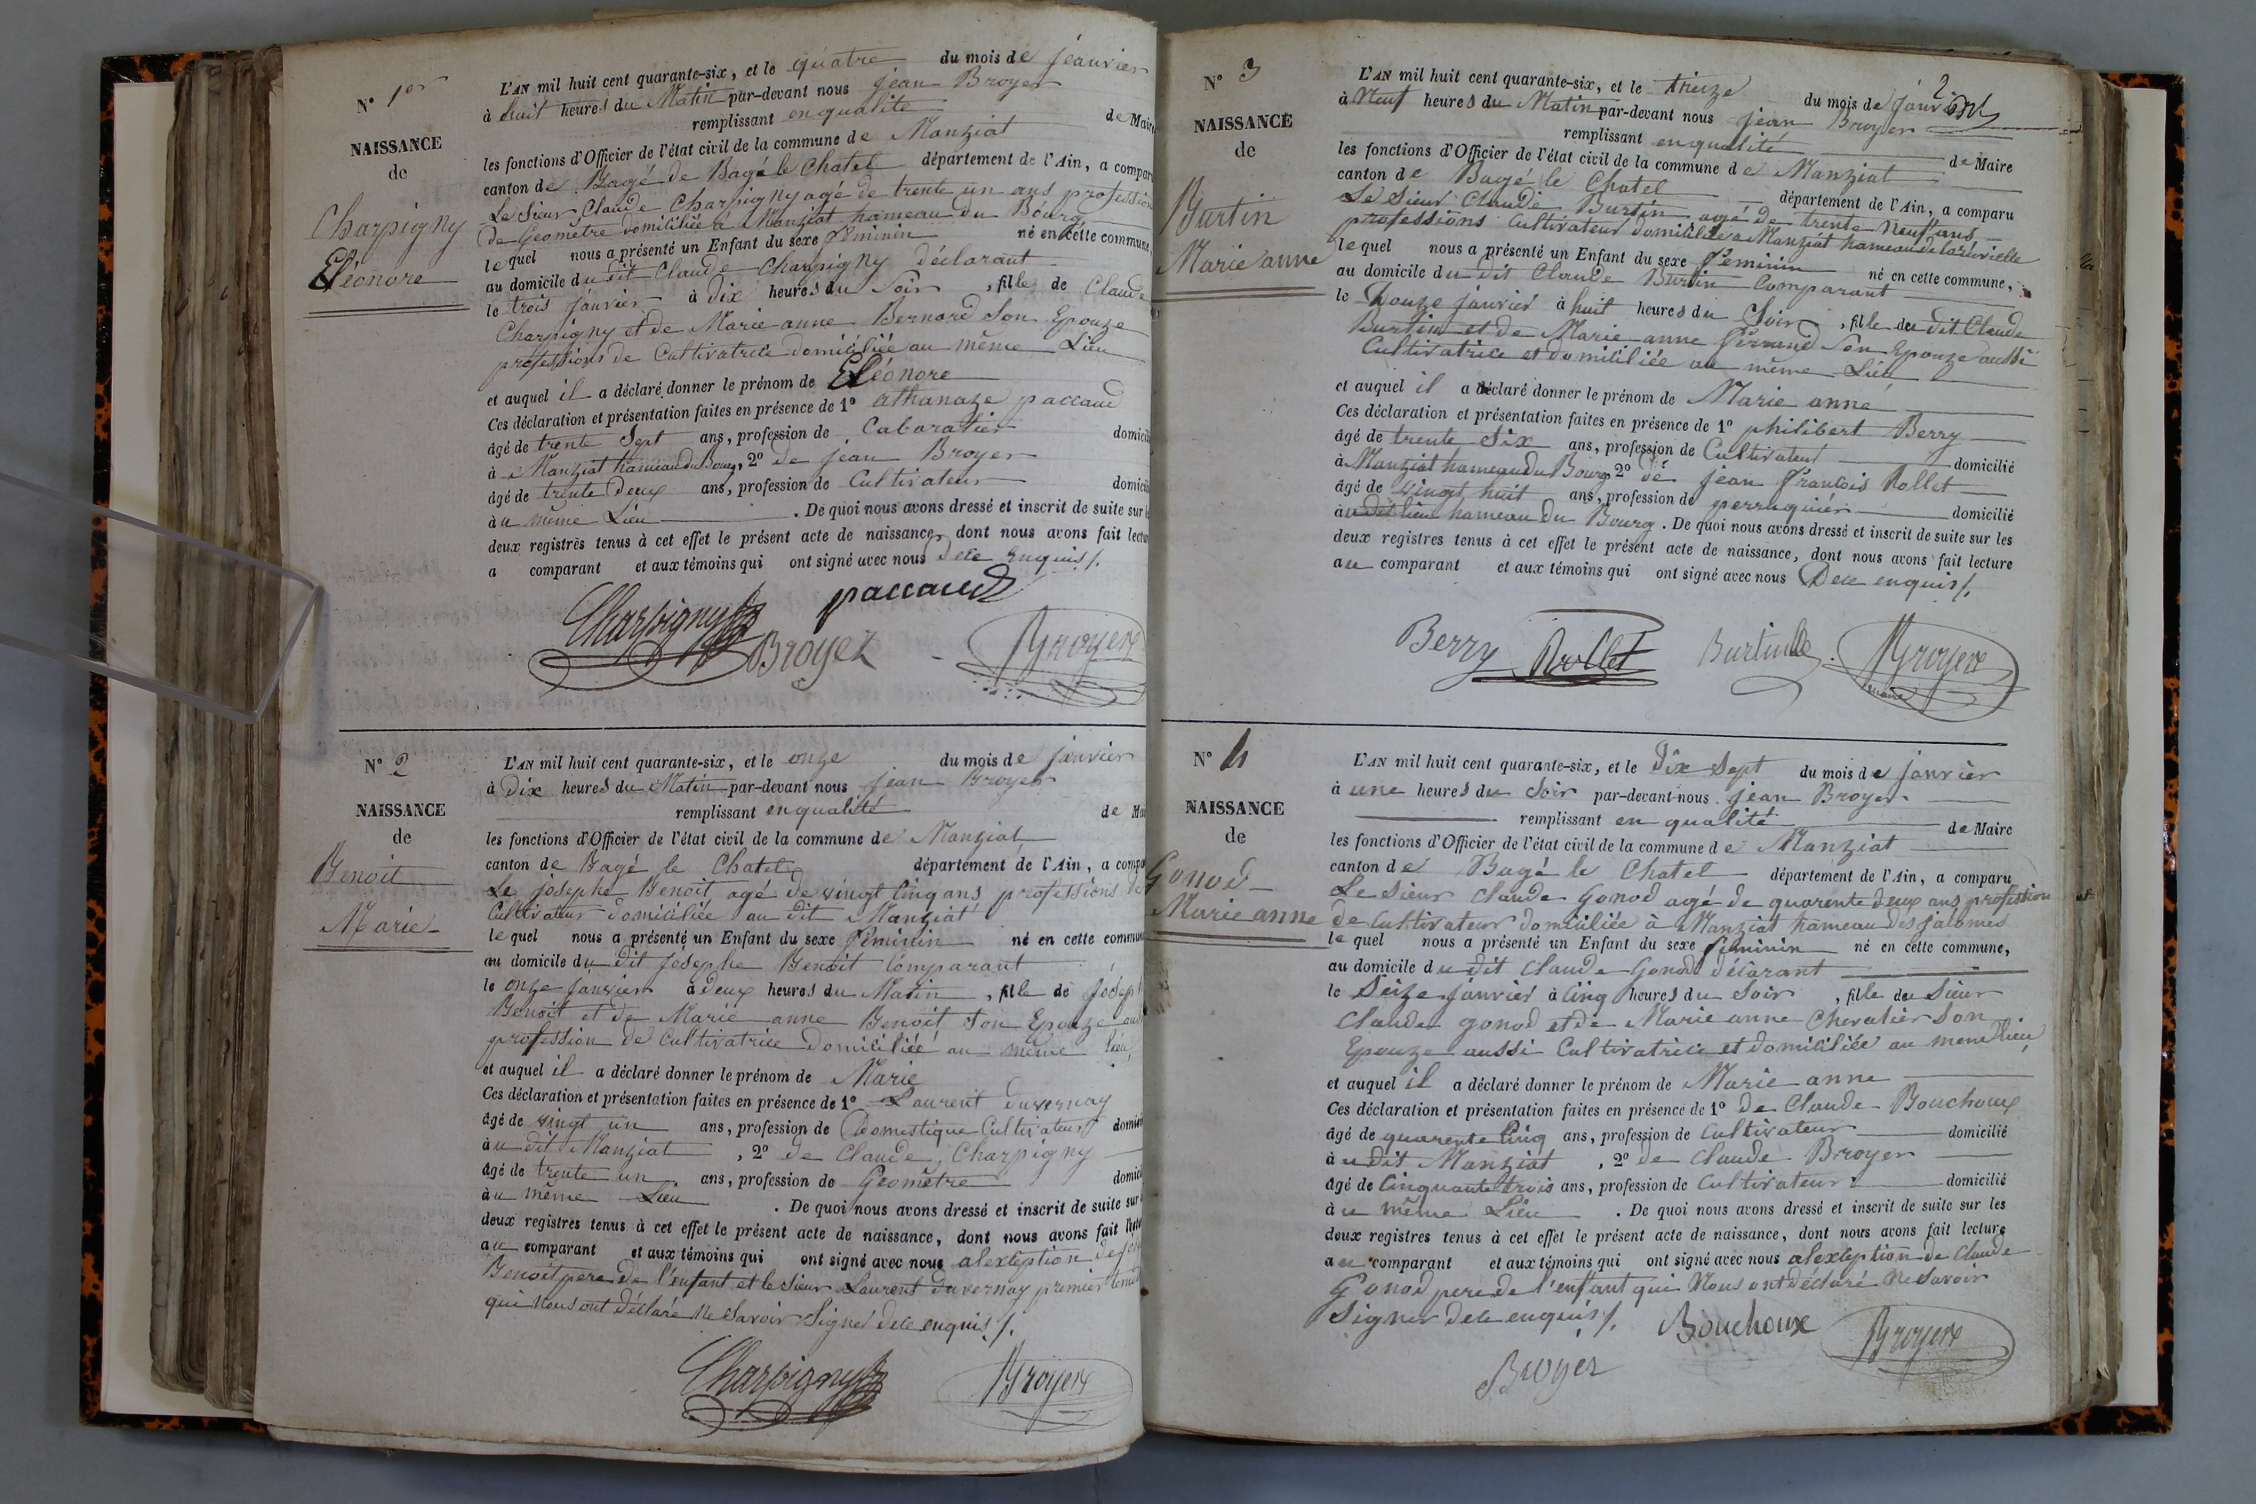 N° 1er
NAISSANCE
de
Charpigny
Eléonore
L'AN mil huit cent quarante-six, et le quatre du mois de jeanvier
à huit heures du Matin par-devant nous jean Broyer
remplissant en qualité de Maire
les fonctions d'Officier de l'état civil de la commune de Manziat
canton de Bagé de Bagé le Chatel département de l'Ain, a comparu
Le Sieur Claude Charpigny agé de trente un ans profession
de Geomètre domiciliée à Manziat hameau du Bourg
lequel nous a présenté un Enfant du sexe féminin né en cette commune,
au domicile du dit Claude Charpigny déclarant
le trois janvier à dix heures du Soir, fille de Claude
Charpigny et de Marie anne Bernard Son Epouze
professions de Cultivatrice domiciliée au même Lieu
et auquel il a déclaré donner le prénom de Eléonore
Ces déclaration et présentation faites en présence de 1° athanaze paccaud
âgé de trente Sept ans, profession de Cabaratier domicilié
à Manziat hameau du Bourg, 2° de jean Broyer
âgé de trente deux ans, profession de Cultivateur domicilié
à u même Lieu. De quoi nous avons dressé et inscrit de suite sur
deux registres tenus à cet effet le présent acte de naissance, dont nous avons fait lecture
a comparant et aux témoins qui ont signé avec nous dece enquis /.
Charpigny paccaud
Broyer Broyer
N° 2
NAISSANCE
de
Benoit
Marie
L'AN mil huit cent quarante-six, et le onze du mois de janvier
à Dix heures du Matin par-devant nous jean Broyer
remplissant en qualité de Mai
les fonctions d'Officier de l'état civil de la commune de Manziat
canton de Bagé le Chatel département de l'Ain, a compa
Le josephe Benoit agé de vingt Cinq ans professions de
Cultivateur domiciliée au dit Manziat
lequel nous a présenté un Enfant du sexe féminin né en cette commune
au domicile du dit josephe Benoit Comparant
le onze janvier à deux heures du Matin, fille de joseph
Benoit et de Marie anne Benoit Son Epouze
profession de Cultivatrice domiciliée au même lieu
et auquel il a déclaré donner le prénom de Marie
Ces déclaration et présentation faites en présence de 1° Laurent duvernay
âgé de vingt un ans, profession de Domestique Cultivateur domici
à u dit Manziat, 2° de Claude Charpigny
âgé de trente un ans, profession de Géomètre domici
à u même Lieu. De quoi nous avons dressé et inscrit de suite sur
deux registres tenus à cet effet le présent acte de naissance, dont nous avons fait lectu
au comparant et aux témoins qui ont signé avec nous alexception de
Benoit pere de l'enfant et le Sieur Laurent duvernay premier temoin
qui Nous ont déclaré Ne Savoir Signé dece enquis /.
Charpigny Broyer
2
N° 3
NAISSANCE
de
Burtin
Marie anne
L'AN mil huit cent quarante-six, et le treize du mois de janvier
à Neuf heures du Matin par-devant nous jean Broyer
remplissant en qualité de Maire
les fonctions d'Officier de l'état civil de la commune de Manziat
canton de Bagé le Chatel département de l'Ain, a comparu
Le Sieur Claude Burtin agé de trente Neuf ans
professions Cultivateur domiciliée à Manziat hameau de
lequel nous a présenté un Enfant du sexe féminin né en cette commune,
au domicile du dit Claude Burtin Comparant
le Douze janvier à huit heures du Soir, fille du dit Claude
Burtin et de Marie anne ferrand Son Epouze aussi
Cultivatrice et domiciliée au même Lieu
et auquel il a déclaré donner le prénom de Marie anne
Ces déclaration et présentation faites en présence de 1° philibert Berry
âgé de trente Six ans, profession de Cultivateur domicilié
à Manziat hameau du Bourg 2° de jean francois Rollet
âgé de vingt huit ans, profession de perruquier domicilié
à u dit lieu hameau du Bourg. De quoi nous avons dressé et inscrit de suite sur les
deux registres tenus à cet effet le présent acte de naissance, dont nous avons fait lecture
au comparant et aux témoins qui ont signé avec nous Dece enquis /.
Berry Rollet Burtin Broyer
maire
N° 4
NAISSANCE
de
Gonod
Marie anne
L'AN mil huit cent quarante-six, et le Dix Sept du mois de janvier
à une heures du Soir par-devant nous jean Broyer
remplissant en qualité de Maire
les fonctions d'Officier de l'état civil de la commune de Manziat
canton de Bagé le Chatel département de l'Ain, a comparu
Le Sieur Claude Gonod agé de quarente deux ans profession
de Cultivateur domiciliée à Manziat hameau des jalomes
lequel nous a présenté un Enfant du sexe féminin né en cette commune,
au domicile du dit Claude Gonod déclarant
le Seize janvier à Cinq heures du Soir, fille du Sieur
Claude gonod et de Marie anne Chevalier Son
Epouze aussi Cultivatrice et domiciliée au même lieu
et auquel il a déclaré donner le prénom de Marie anne
Ces déclaration et présentation faites en présence de 1° de Claude Bouchoux
âgé de quarente Cinq ans, profession de Cultivateur domicilié
à u dit Manziat, 2° de Claude Broyer
âgé de Cinquante trois ans, profession de Cultivateur domicilié
à u même Lieu. De quoi nous avons dressé et inscrit de suite sur les
deux registres tenus à cet effet le présent acte de naissance, dont nous avons fait lecture
au comparant et aux témoins qui ont signé avec nous alexception de Claude
Gonod pere de l'enfant qui Nous ont déclaré Ne Savoir
Signer dece enquis /. Bouchoux Broyer
Broyer